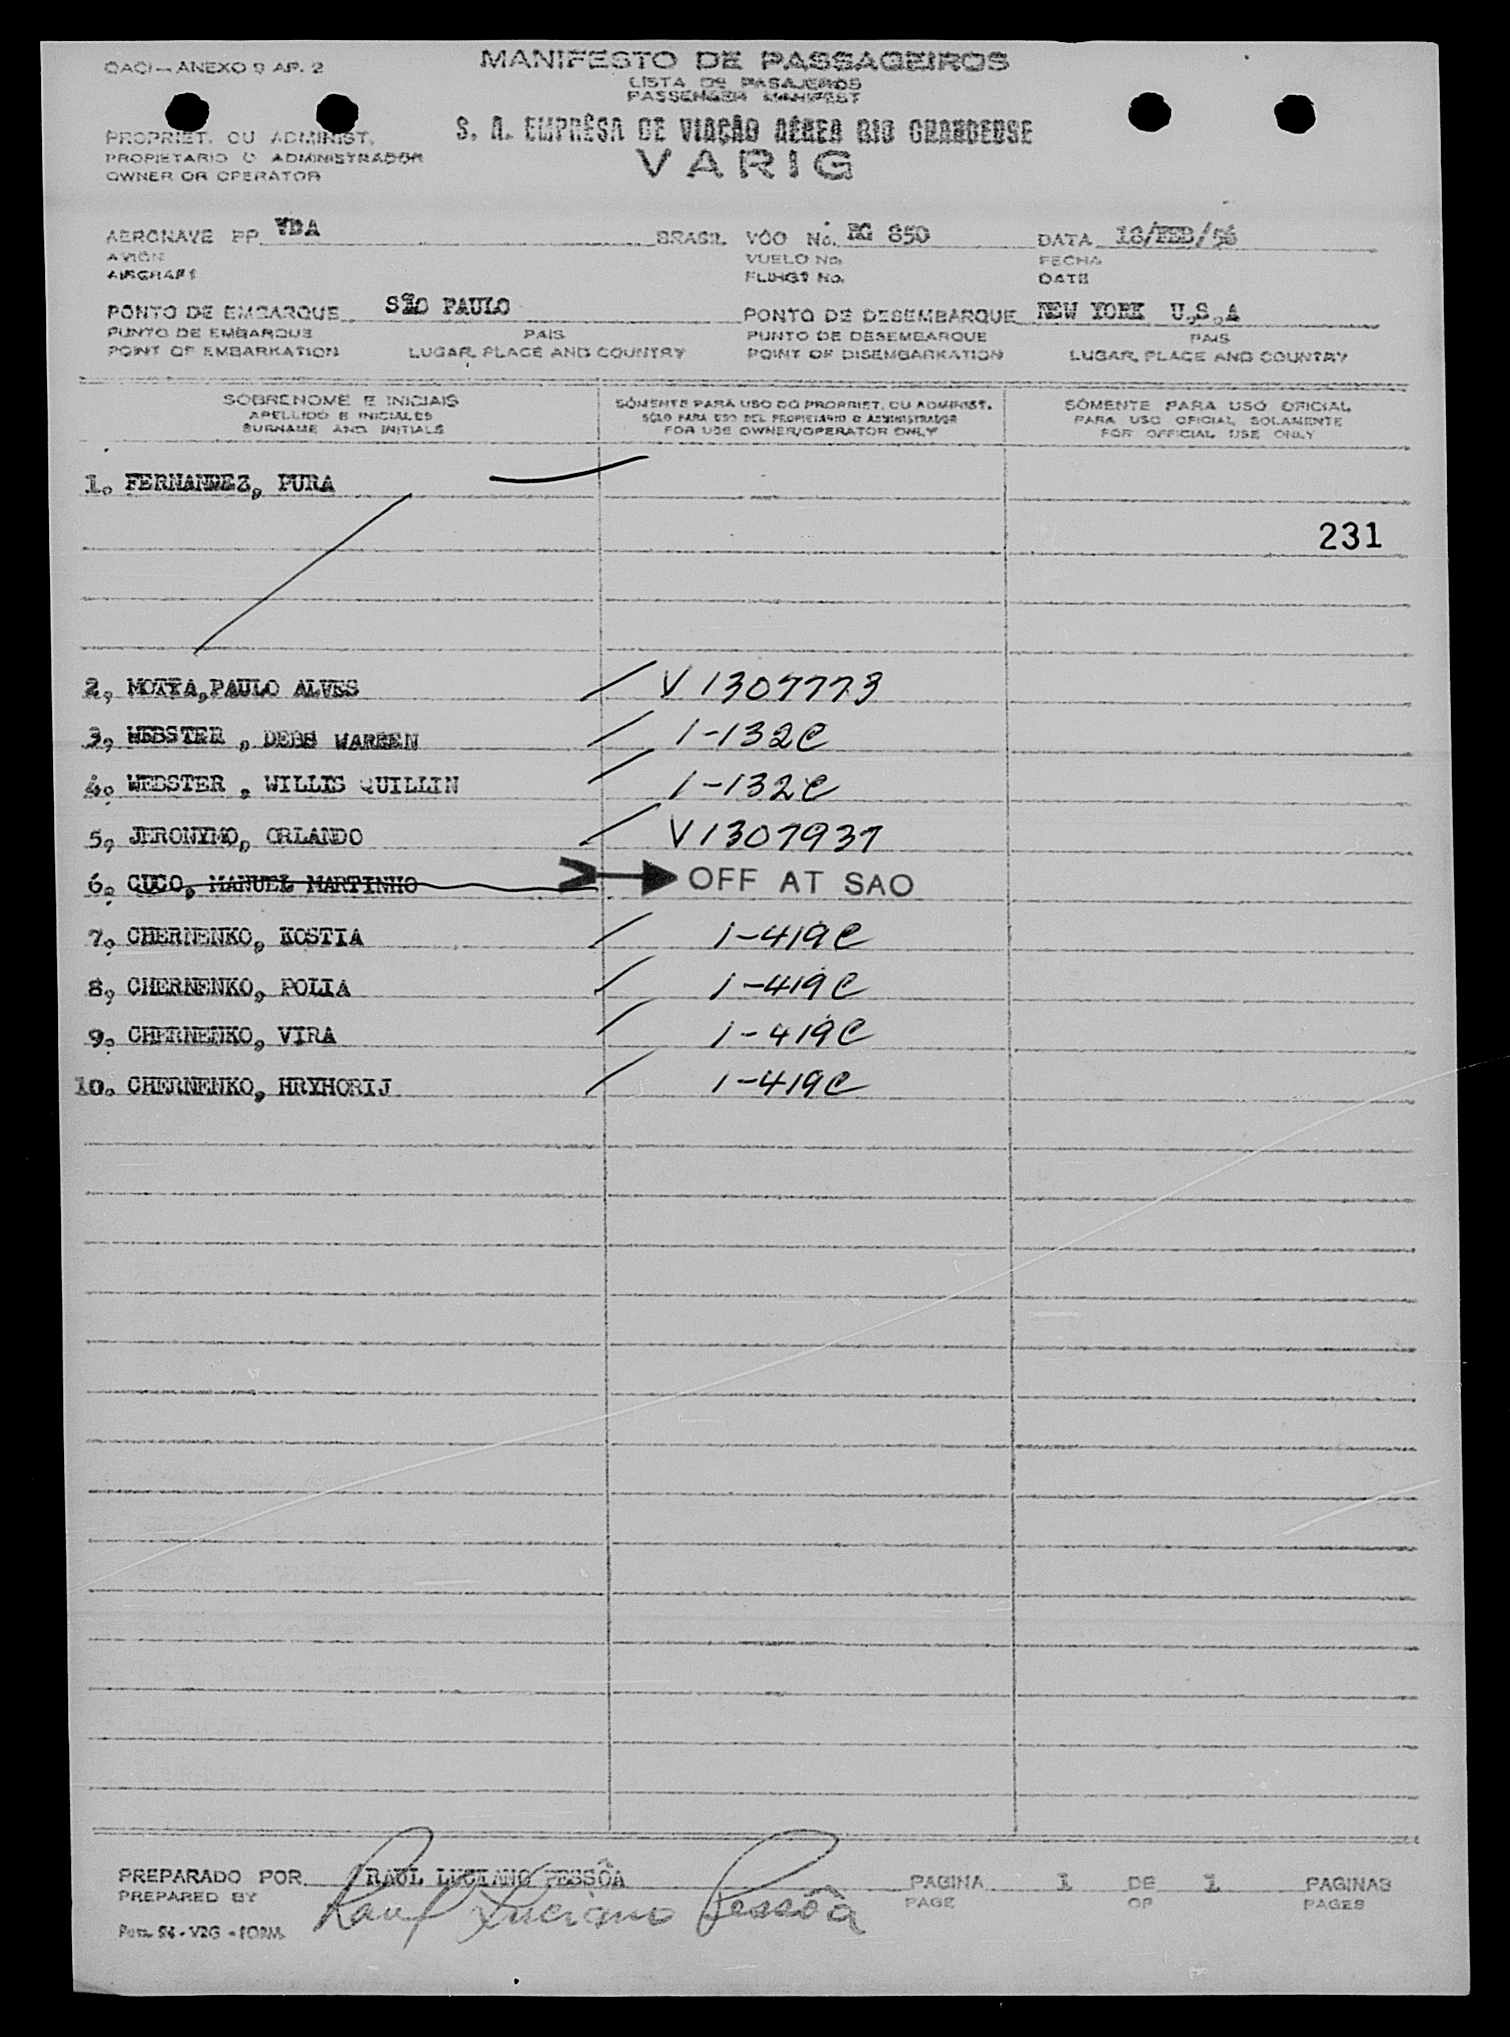 OACI - ANEXO 9 AP. 2
MANIFESTO DE PASSAGEIROS
LISTA DE PASAJEROS
PASSENGER MANIFEST
PROPRIET. OU ADMINIST.
PROPIETARIO O ADMINISTRADOR
OWNER OR OPERATOR
S. A. EMPRÊSA DE VIAÇÃO AÉREA RIO GRANDENSE
VARIG
AERONAVE PP VDA BRASIL VÔO No. RG 850 DATA 18/FEB/56
AVIÓN VUELO No. FECHA
AIRCRAFT FLIHGT No. DATE
PONTO DE EMBARQUE SÃO PAULO PONTO DE DESEMBARQUE NEW YORK U.S.A
PUNTO DE EMBARQUE PAIS PUNTO DE DESEMBARQUE PAIS
POINT OF EMBARKATION LUGAR, PLACE AND COUNTRY POINT OF DISEMBARKATION LUGAR, PLACE AND COUNTRY
SOBRENOME E INICIAIS SÒMENTE PARA USO DO PROPRIET. OU ADMINIST. SÒMENTE PARA USO OFICIAL
APELLIDO E INICIALES SÓLO PARA USO DEL PROPIETARIO O ADMINISTRADOR PARA USO OFICIAL SOLAMENTE
SURNAME AND INITIALS FOR USE OWNER/OPERATOR ONLY FOR OFFICIAL USE ONLY
1. FERNANDEZ, PURA
231
2, MOTTA, PAULO ALVES V 1307773
3, WEBSTER , DEBS WARREN 1-132C
4. WEBSTER , WILLIS QUILLIN 1-132C
5, JERONYMO, ORLANDO V 1307937
6. CUCO, MANUEL MARTINHO OFF AT SAO
7. CHERNENKO, KOSTIA 1-419C
8, CHERNENKO, POLIA 1-419C
9. CHERNENKO, VIRA 1-419C
10. CHERNENKO, HRYHORIJ 1-419C
PREPARADO POR RAUL LUCIANO PESSÔA PAGINA 1 DE 1 PAGINAS
PREPARED BY Raul Luciano Pessôa PAGE OF PAGES